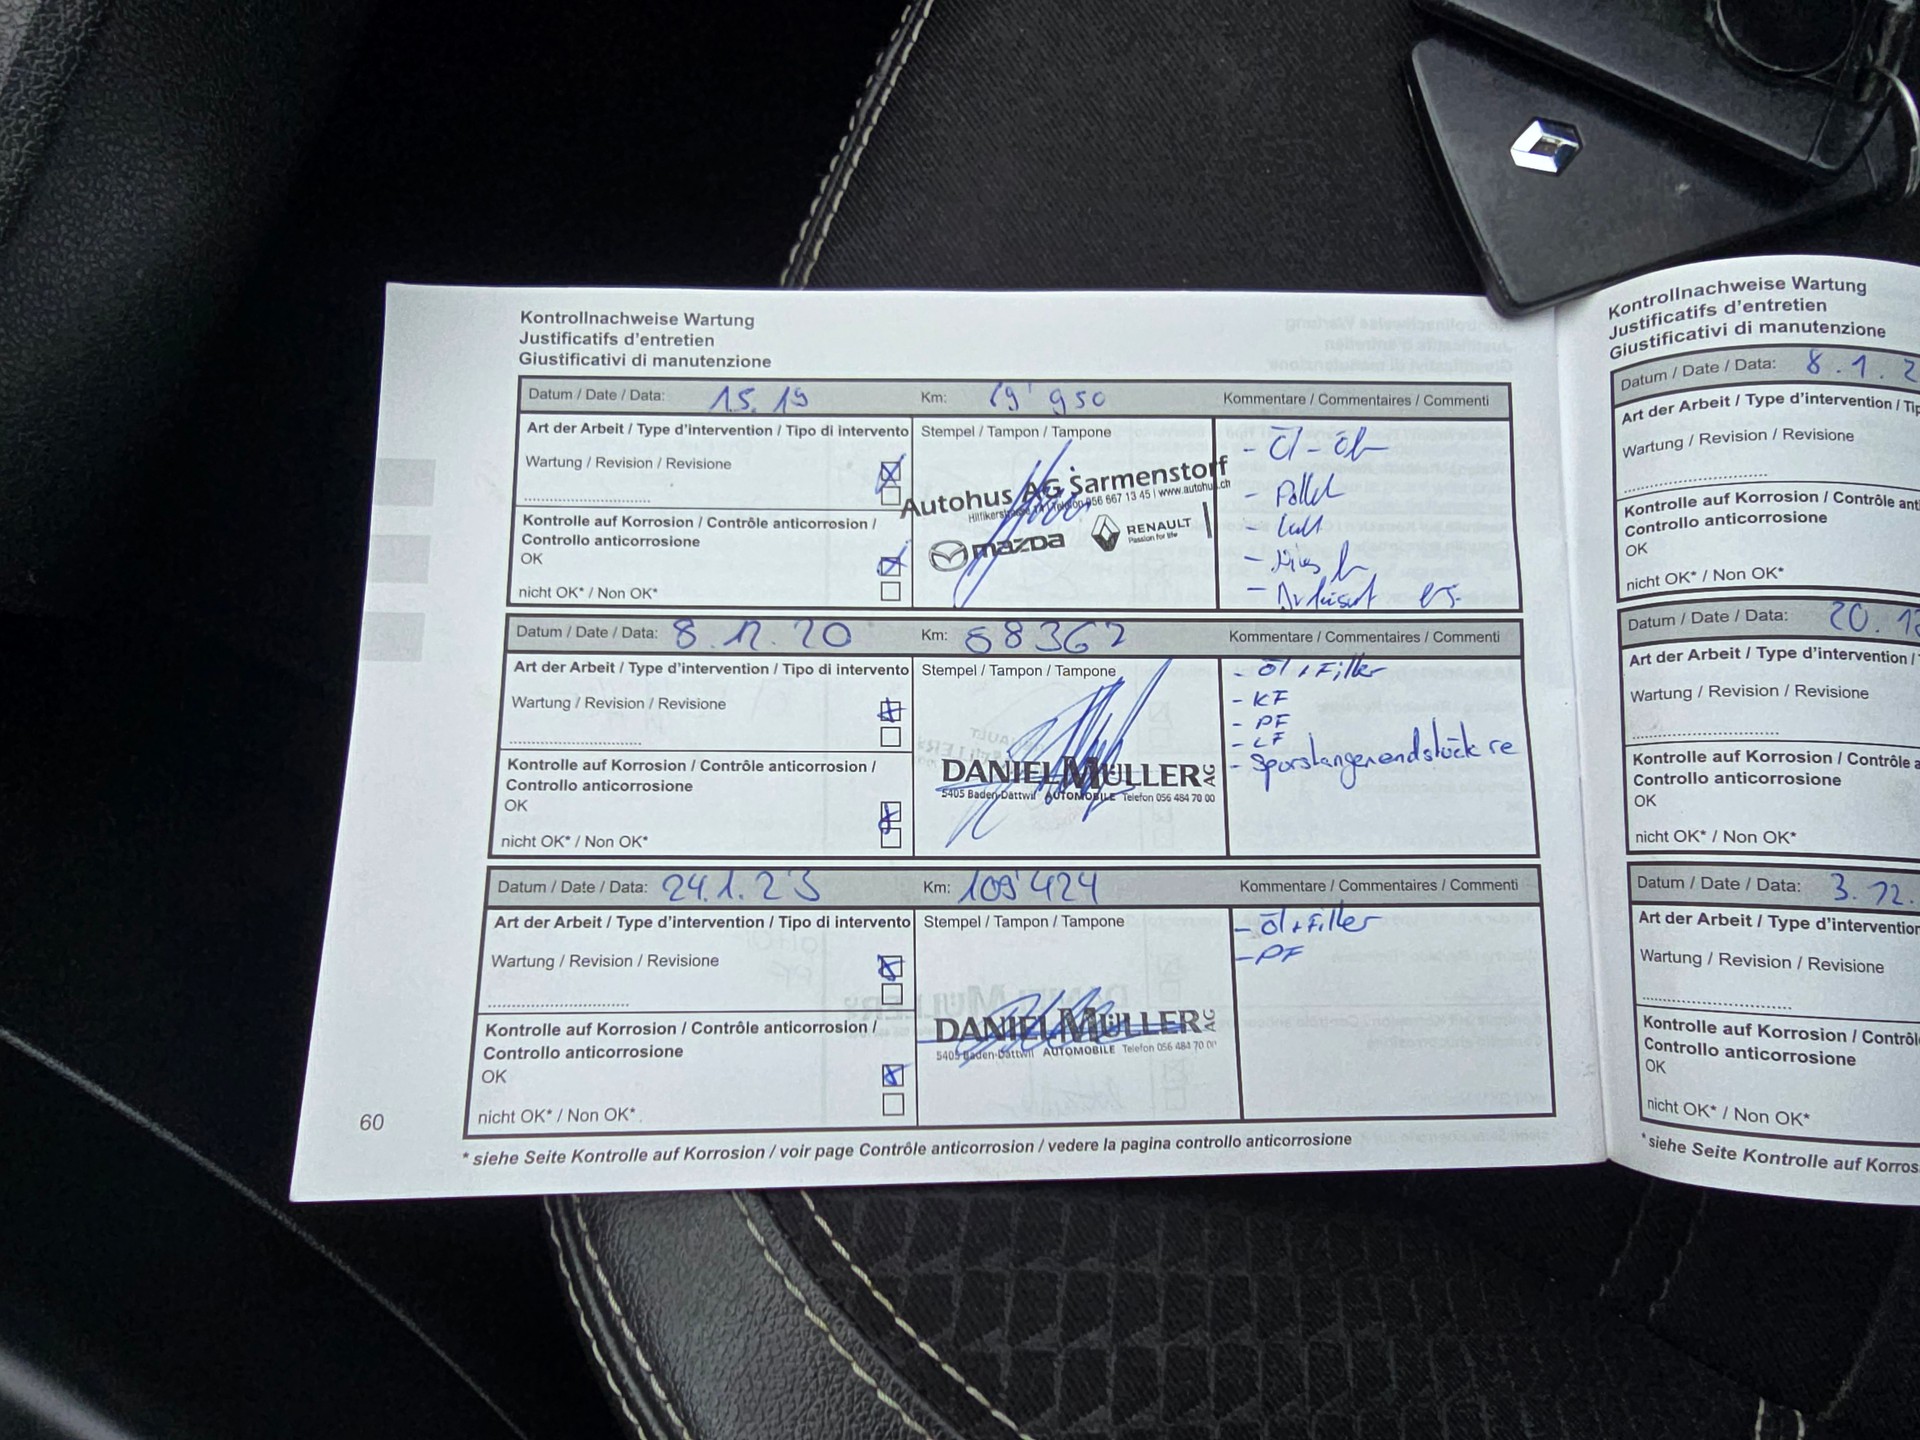 Kontrollnachweise Wartung
Justificatifs d'entretien
Giustificativi di manutenzione
Datum / Date / Data: 15.19 Km: 19'950 Kommentare / Commentaires / Commenti
Art der Arbeit / Type d'intervention / Tipo di intervento
Wartung / Revision / Revisione
Kontrolle auf Korrosion / Contrôle anticorrosion /
Controllo anticorrosione
OK
nicht OK* / Non OK*
Stempel / Tampon / Tampone
Autohus AG Sarmenstorf
Telefon 056 667 13 45 | www.autohus.ch
mazda RENAULT
Passion for life
- Öl -
- Pollen
- Luft
Datum / Date / Data: 8.12.20 Km: 68362 Kommentare / Commentaires / Commenti
Art der Arbeit / Type d'intervention / Tipo di intervento
Wartung / Revision / Revisione
Kontrolle auf Korrosion / Contrôle anticorrosion /
Controllo anticorrosione
OK
nicht OK* / Non OK*
Stempel / Tampon / Tampone
DANIEL MÜLLER AG
5405 Baden-Dättwil AUTOMOBILE Telefon 056 484 70 00
- Öl + Filter
- KF
- PF
- LF
- Spurstangenendstück re
Datum / Date / Data: 24.1.23 Km: 109'424 Kommentare / Commentaires / Commenti
Art der Arbeit / Type d'intervention / Tipo di intervento
Wartung / Revision / Revisione
Kontrolle auf Korrosion / Contrôle anticorrosion /
Controllo anticorrosione
OK
nicht OK* / Non OK*
Stempel / Tampon / Tampone
DANIEL MÜLLER AG
5405 Baden-Dättwil AUTOMOBILE Telefon 056 484 70 00
- Öl + Filter
- PF
60
* siehe Seite Kontrolle auf Korrosion / voir page Contrôle anticorrosion / vedere la pagina controllo anticorrosione
Kontrollnachweise Wartung
Justificatifs d'entretien
Giustificativi di manutenzione
Datum / Date / Data: 8.1.2
Art der Arbeit / Type d'intervention / Tip
Wartung / Revision / Revisione
Kontrolle auf Korrosion / Contrôle anti
Controllo anticorrosione
OK
nicht OK* / Non OK*
Datum / Date / Data: 20.12
Art der Arbeit / Type d'intervention /
Wartung / Revision / Revisione
Kontrolle auf Korrosion / Contrôle a
Controllo anticorrosione
OK
nicht OK* / Non OK*
Datum / Date / Data: 3.12.
Art der Arbeit / Type d'intervention
Wartung / Revision / Revisione
Kontrolle auf Korrosion / Contrôl
Controllo anticorrosione
OK
nicht OK* / Non OK*
* siehe Seite Kontrolle auf Korros